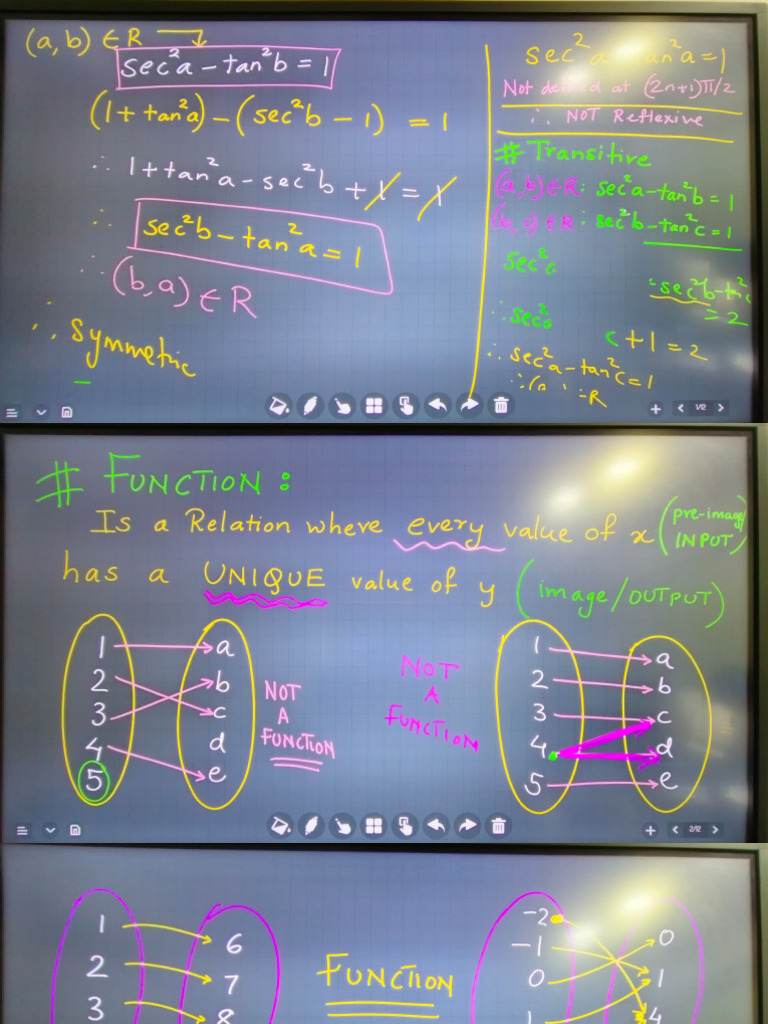 (a, b) ∈ R
sec²a – tan²b = 1
(1 + tan²a) – (sec²b – 1) = 1
∴ 1 + tan²a – sec²b + 1 = 1
∴ sec²b – tan²a = 1
∴ (b, a) ∈ R
∴ Symmetric
sec²a tan²a = 1
Not defined at (2n+1)π/2
∴ NOT Reflexive
# Transitive
(a, b) ∈ R : sec²a – tan²b = 1
(b, c) ∈ R : sec²b – tan²c = 1
sec²a
sec²b – tan²c
= 2
∴ sec²a
c + 1 = 2
∴ sec²a – tan²c = 1
∴ R
1/2
# FUNCTION :
Is a Relation where every value of x (pre-image/ INPUT)
has a UNIQUE value of y (image/OUTPUT)
1 a
2 b
3 c
4 d
5 e
NOT
A
FUNCTION
NOT
A
FUNCTION
1 a
2 b
3 c
4 d
5 e
2/2
1 6
2 7
3 8
FUNCTION
-2 0
-1 1
0 4
1